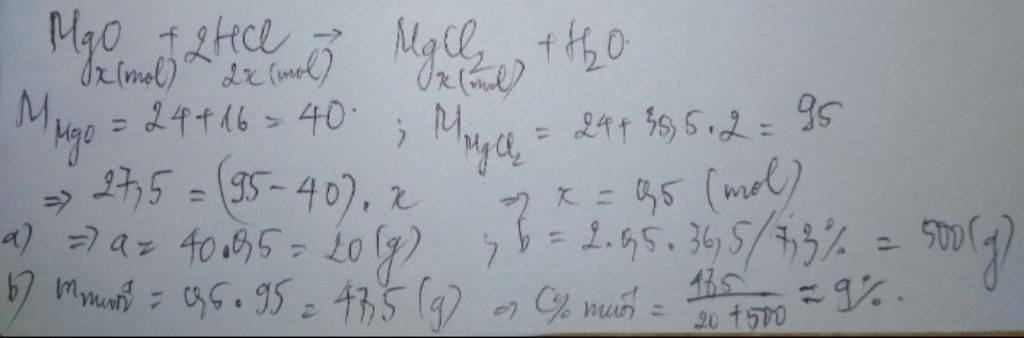 MgO + 2HCl → MgCl₂ + H₂O
x(mol) 2x(mol) x(mol)
M_MgO = 24+16 = 40 ; M_MgCl₂ = 24+35,5.2 = 95
⇒ 27,5 = (95-40).x ⇒ x = 0,5 (mol)
a) ⇒ a = 40.0,5 = 20(g) ; b = 2.0,5.36,5/7,3% = 500(g)
b) m muối = 0,5.95 = 47,5(g) ⇒ C% muối = 47,5/(20+500) = 9%.